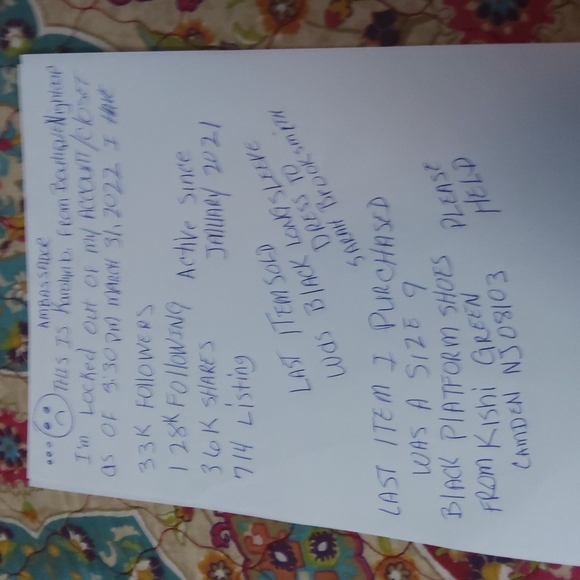 AMBASSADOR
THIS IS Karolyn b. From BoutiqueNightcap
I'm Locked out of my Account/closet
as of 3:30 PM MARCH 31, 2022 I have
33K FOLLOWERS
128K FOLLOWING Active Since
36K SHARES JANUARY 2021
714 Listing
LAST ITEM SOLD
WAS BLACK LONG SLEEVE
DRESS TO
SARAH BROOKSMITH
LAST ITEM I PURCHASED
WAS A SIZE 9
BLACK PLATFORM SHOES PLEASE
FROM KISHI GREEN HELP
CAMDEN NJ 08103